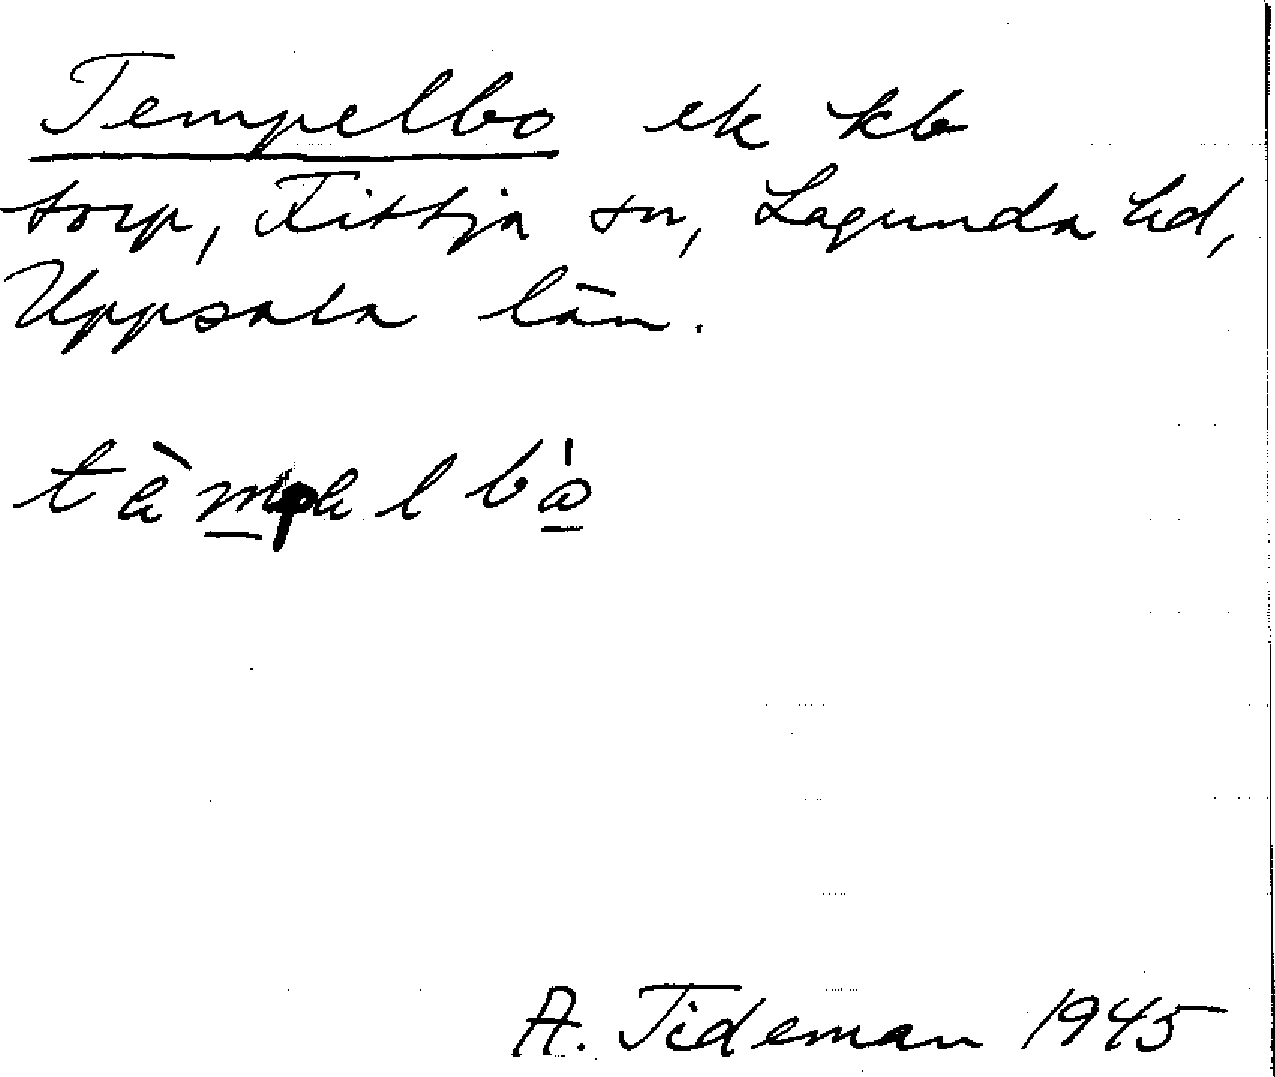 Tempelbo ek kb
torp, Fittja sn, Lagunda hd,
Uppsala län.
tèmpelbò
A. Tideman 1945